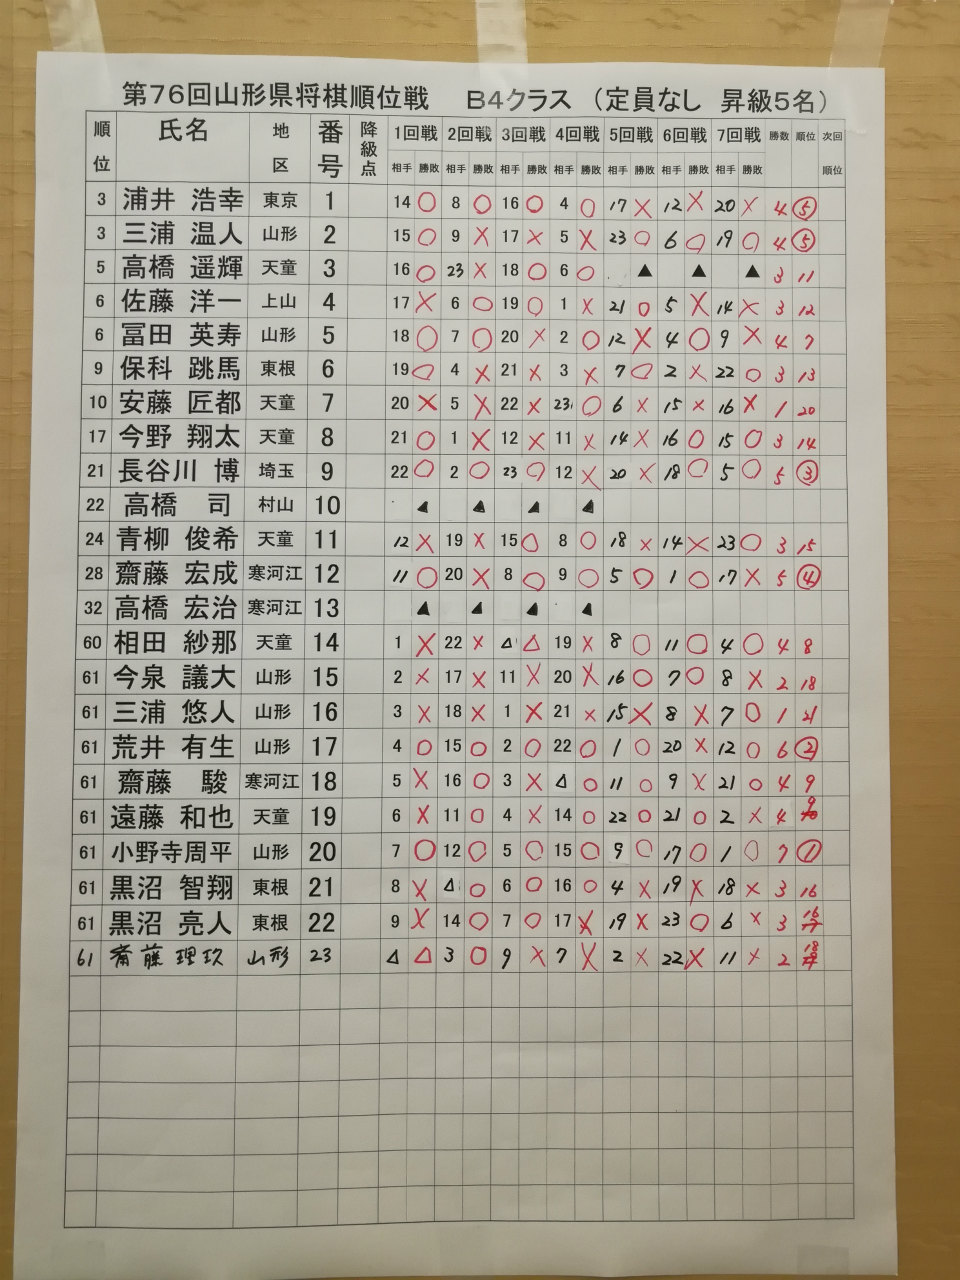 第76回山形県将棋順位戦 B4クラス (定員なし 昇級5名)
順位 氏名 地区 番号 降級点 1回戦 2回戦 3回戦 4回戦 5回戦 6回戦 7回戦 勝数 順位 次回順位
相手 勝敗 相手 勝敗 相手 勝敗 相手 勝敗 相手 勝敗 相手 勝敗 相手 勝敗
3 浦井 浩幸 東京 1 14 ○ 8 ○ 16 ○ 4 ○ 17 × 12 × 20 × 4 ⑤
3 三浦 温人 山形 2 15 ○ 9 × 17 × 5 × 23 ○ 6 ○ 19 ○ 4 ⑤
5 高橋 遥輝 天童 3 16 ○ 23 × 18 ○ 6 ○ ▲ ▲ ▲ 3 11
6 佐藤 洋一 上山 4 17 × 6 ○ 19 ○ 1 × 21 ○ 5 × 14 × 3 12
6 冨田 英寿 山形 5 18 ○ 7 ○ 20 × 2 ○ 12 × 4 ○ 9 × 4 7
9 保科 跳馬 東根 6 19 ○ 4 × 21 × 3 × 7 ○ 2 × 22 ○ 3 13
10 安藤 匠都 天童 7 20 × 5 × 22 × 23 ○ 6 × 15 × 16 × 1 20
17 今野 翔太 天童 8 21 ○ 1 × 12 × 11 × 14 × 16 ○ 15 ○ 3 14
21 長谷川 博 埼玉 9 22 ○ 2 ○ 23 ○ 12 × 20 × 18 ○ 5 ○ 5 ③
22 高橋 司 村山 10 ▲ ▲ ▲ ▲
24 青柳 俊希 天童 11 12 × 19 × 15 ○ 8 ○ 18 × 14 × 23 ○ 3 15
28 齋藤 宏成 寒河江 12 11 ○ 20 × 8 ○ 9 ○ 5 ○ 1 ○ 17 × 5 ④
32 高橋 宏治 寒河江 13 ▲ ▲ ▲ ▲
60 相田 紗那 天童 14 1 × 22 × △ △ 19 × 8 ○ 11 ○ 4 ○ 4 8
61 今泉 議大 山形 15 2 × 17 × 11 × 20 × 16 ○ 7 ○ 8 × 2 18
61 三浦 悠人 山形 16 3 × 18 × 1 × 21 × 15 × 8 × 7 ○ 1 21
61 荒井 有生 山形 17 4 ○ 15 ○ 2 ○ 22 ○ 1 ○ 20 × 12 ○ 6 ②
61 齋藤 駿 寒河江 18 5 × 16 ○ 3 × △ ○ 11 ○ 9 × 21 ○ 4 9
61 遠藤 和也 天童 19 6 × 11 ○ 4 × 14 ○ 22 ○ 21 ○ 2 × 4 9
61 小野寺周平 山形 20 7 ○ 12 ○ 5 ○ 15 ○ 9 ○ 17 ○ 1 ○ 7 ①
61 黒沼 智翔 東根 21 8 × △ ○ 6 ○ 16 ○ 4 × 19 × 18 × 3 16
61 黒沼 亮人 東根 22 9 × 14 ○ 7 ○ 17 × 19 × 23 ○ 6 × 3 16
61 斎藤 理玖 山形 23 △ △ 3 ○ 9 × 7 × 2 × 22 × 11 × 2 18